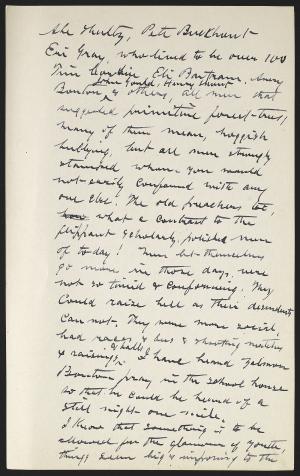 Abe Shultz, Pete Burkhart
Eri Gray, who lived to be over 100
Tim Corbin Eli Bartram,
John Gould, Henry Shunt
Bouton & others, all men that
suggested primitive forest-trees,
many of them mean, hoggish
bullying, but all men strongly
stamined whom you would
not easily confound with any
one else. The old preachers too,
what a contrast to the
flippant scholarly, polished men
of to-day! Men let themselves
go more in those days, were
not so timid & conforming. They
could raise hell as their descendents
can not. They were more social,
had races & bees & shooting matches
& raisings & balls
I have heard
Bouton pray in the school house
so that he could be heard of a
still night one mile.
I know that something is to be
allowed for the glamour of youth,
things seem big & imposing to the